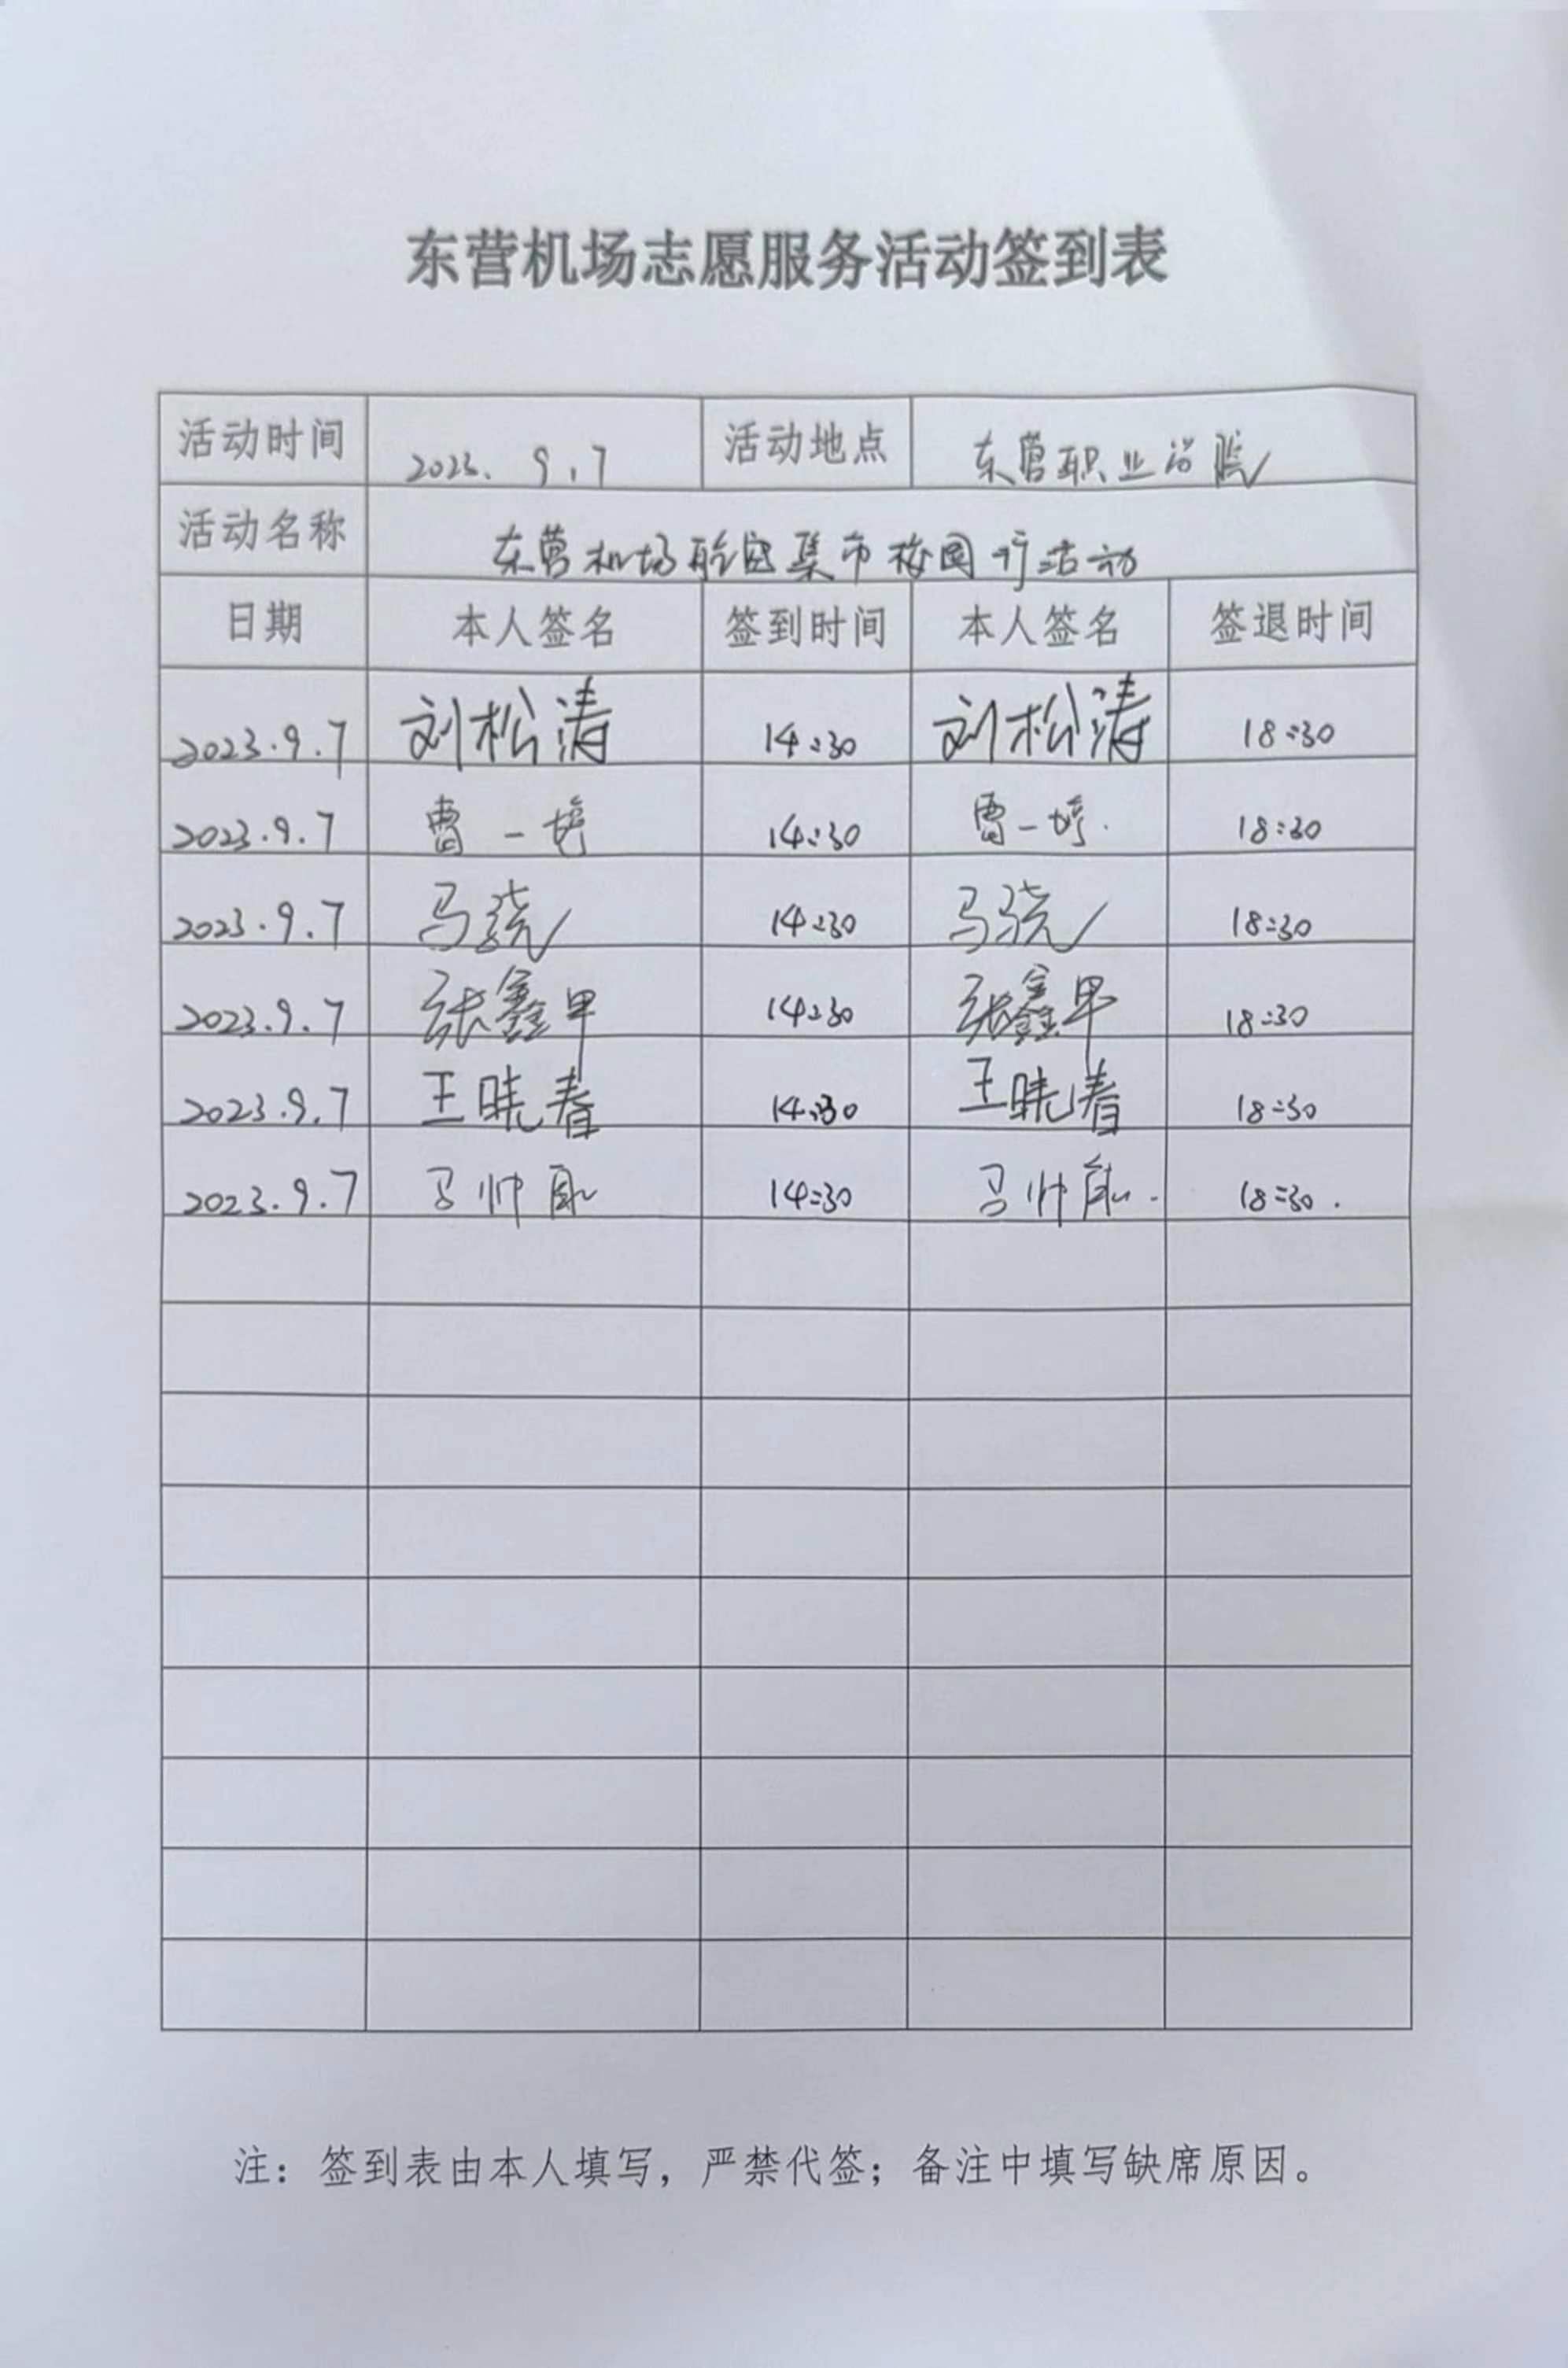 东营机场志愿服务活动签到表
活动时间 2023. 9.7 活动地点 东营职业学院
活动名称 东营机场航空集市校园行活动
日期 本人签名 签到时间 本人签名 签退时间
2023.9.7 刘松涛 14:30 刘松涛 18:30
2023.9.7 曹一婷 14:30 曹一婷. 18:30
2023.9.7 马骁 14:30 马骁 18:30
2023.9.7 张鑫早 14:30 张鑫早 18:30
2023.9.7 王晓春 14:30 王晓春 18:30
2023.9.7 马帅 14:30 马帅 18:30.
注：签到表由本人填写，严禁代签；备注中填写缺席原因。